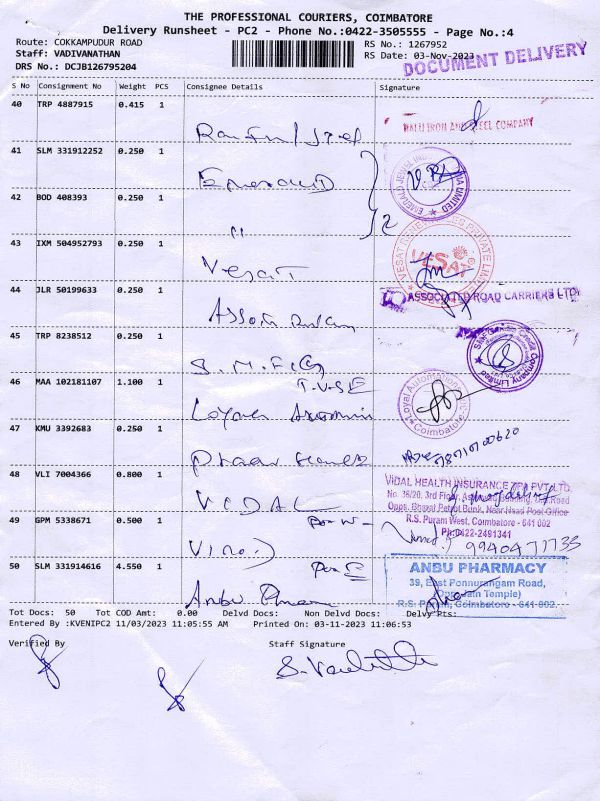 THE PROFESSIONAL COURIERS, COIMBATORE
Delivery Runsheet - PC2 - Phone No.:0422-3505555 - Page No.:4
Route: COKKAMPUDUR ROAD
RS No.: 1267952
Staff: VADIVANATHAN
RS Date: 03-Nov-2023
DRS No.: DCJB126795204
DOCUMENT DELIVERY
S No Consignment No Weight PCS Consignee Details Signature
40 TRP 4887915 0.415 1
RALLI IRON AND STEEL COMPANY
41 SLM 331912252 0.250 1
Emerald
42 BOD 408393 0.250 1
"
2
43 IXM 504952793 0.250 1
VESAT
Vesat
44 JLR 50199633 0.250 1
ASSOCIATED ROAD CARRIERS LTD
45 TRP 8238512 0.250 1
Company Limited
46 MAA 102181107 1.100 1
T.V.S.E
Loyal Automation
Coimbatore
47 KMU 3392683 0.250 1
48 VLI 7004366 0.800 1
VIDAL HEALTH INSURANCE TPA PVT LTD
No. 36/20, 3rd Floor, Road
Opps. Bharat Petrol Bunk, Near Head Post Office
R.S. Puram West, Coimbatore - 641 002
Ph:0422-2491341
VIDAL
49 GPM 5338671 0.500 1
Vinod
9940477733
50 SLM 331914616 4.550 1
ANBU PHARMACY
39, East Ponnurangam Road,
(Opp. Jain Temple)
R.S. Puram, Coimbatore - 641 002.
Anbu
Tot Docs: 50 Tot COD Amt: 0.00 Delvd Docs: Non Delvd Docs: Delvy Pts:
Entered By :KVENIPC2 11/03/2023 11:05:55 AM Printed On: 03-11-2023 11:06:53
Verified By Staff Signature